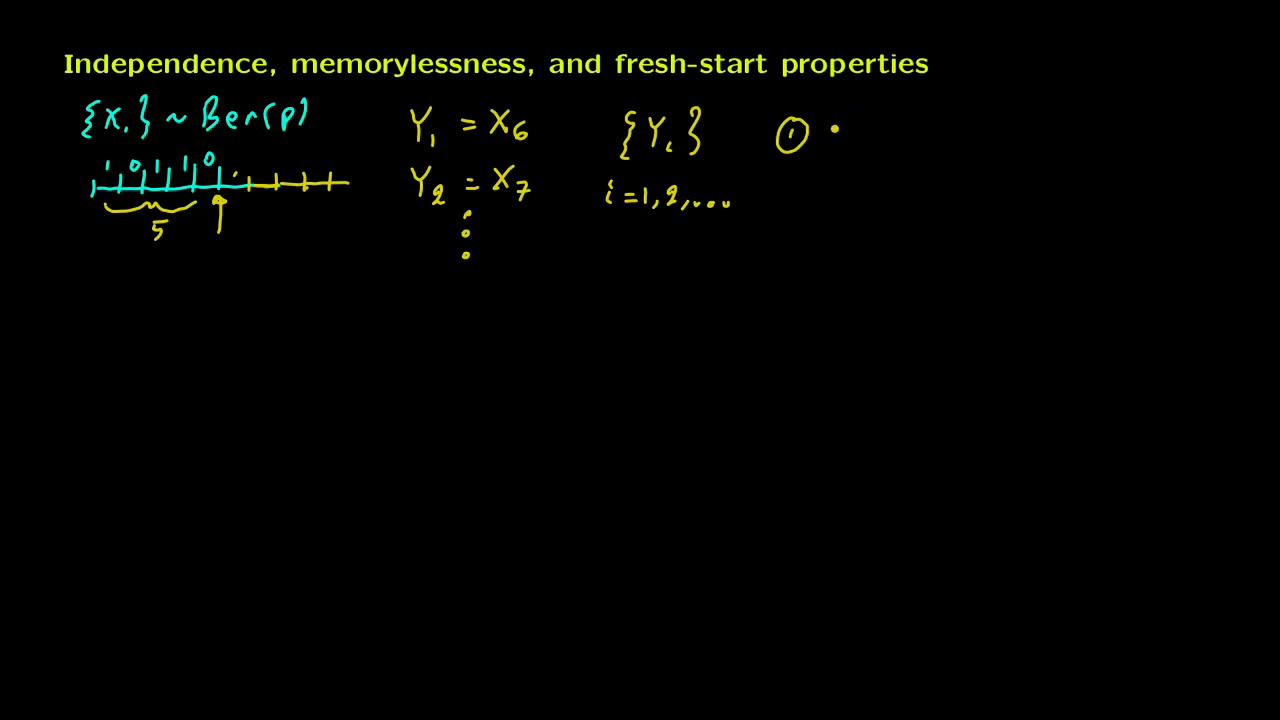 Independence, memorylessness, and fresh-start properties
{X.} ~ Ber(p)
1 0 1 1 1 0
5
Y₁ = X₆
Y₂ = X₇
{Yᵢ}
i = 1, 2, ....
①